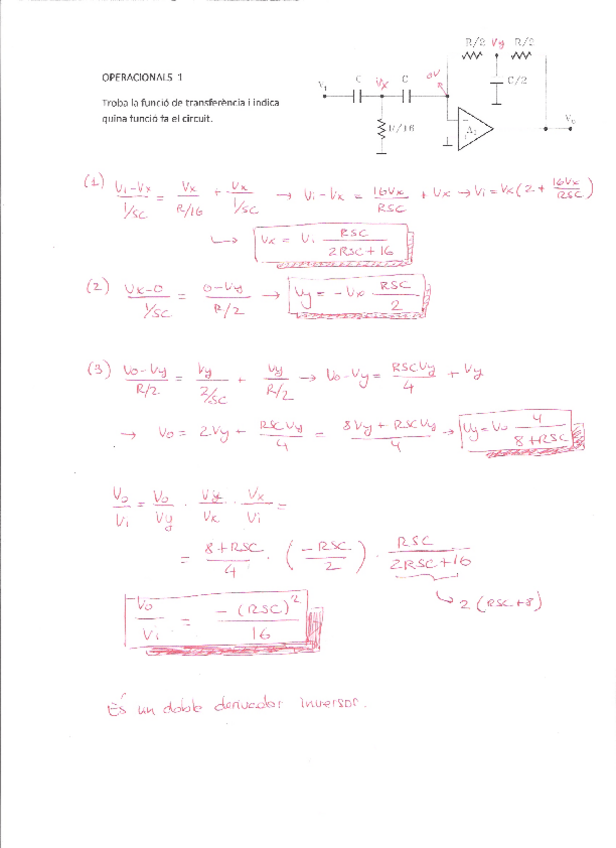 OPERACIONALS 1
Troba la funció de transferència i indica
quina funció fa el circuit.
R/2 Vy R/2
C/2
Vi C Vx C 0V
R/16
A1
Vo
(1) Vi-Vx / 1/SC = Vx / R/16 + Vx / 1/SC → Vi-Vx = 16Vx / RSC + Vx → Vi = Vx(2 + 16Vx / RSC)
↳ Vx = Vi RSC / 2RSC+16
(2) Vx-0 / 1/SC = 0-Vy / R/2 → Vy = -Vx RSC / 2
(3) Vo-Vy / R/2 = Vy / 2/SC + Vy / R/2 → Vo-Vy = RSCVy / 4 + Vy
→ Vo = 2Vy + RSCVy / 4 = 8Vy + RSCVy / 4 → Vy = Vo 4 / 8+RSC
Vo / Vi = Vo / Vy · Vy / Vx · Vx / Vi =
= 8+RSC / 4 · (-RSC / 2) · RSC / 2RSC+16
↳ 2(RSC+8)
Vo / Vi = -(RSC)² / 16
És un doble derivador inversor.